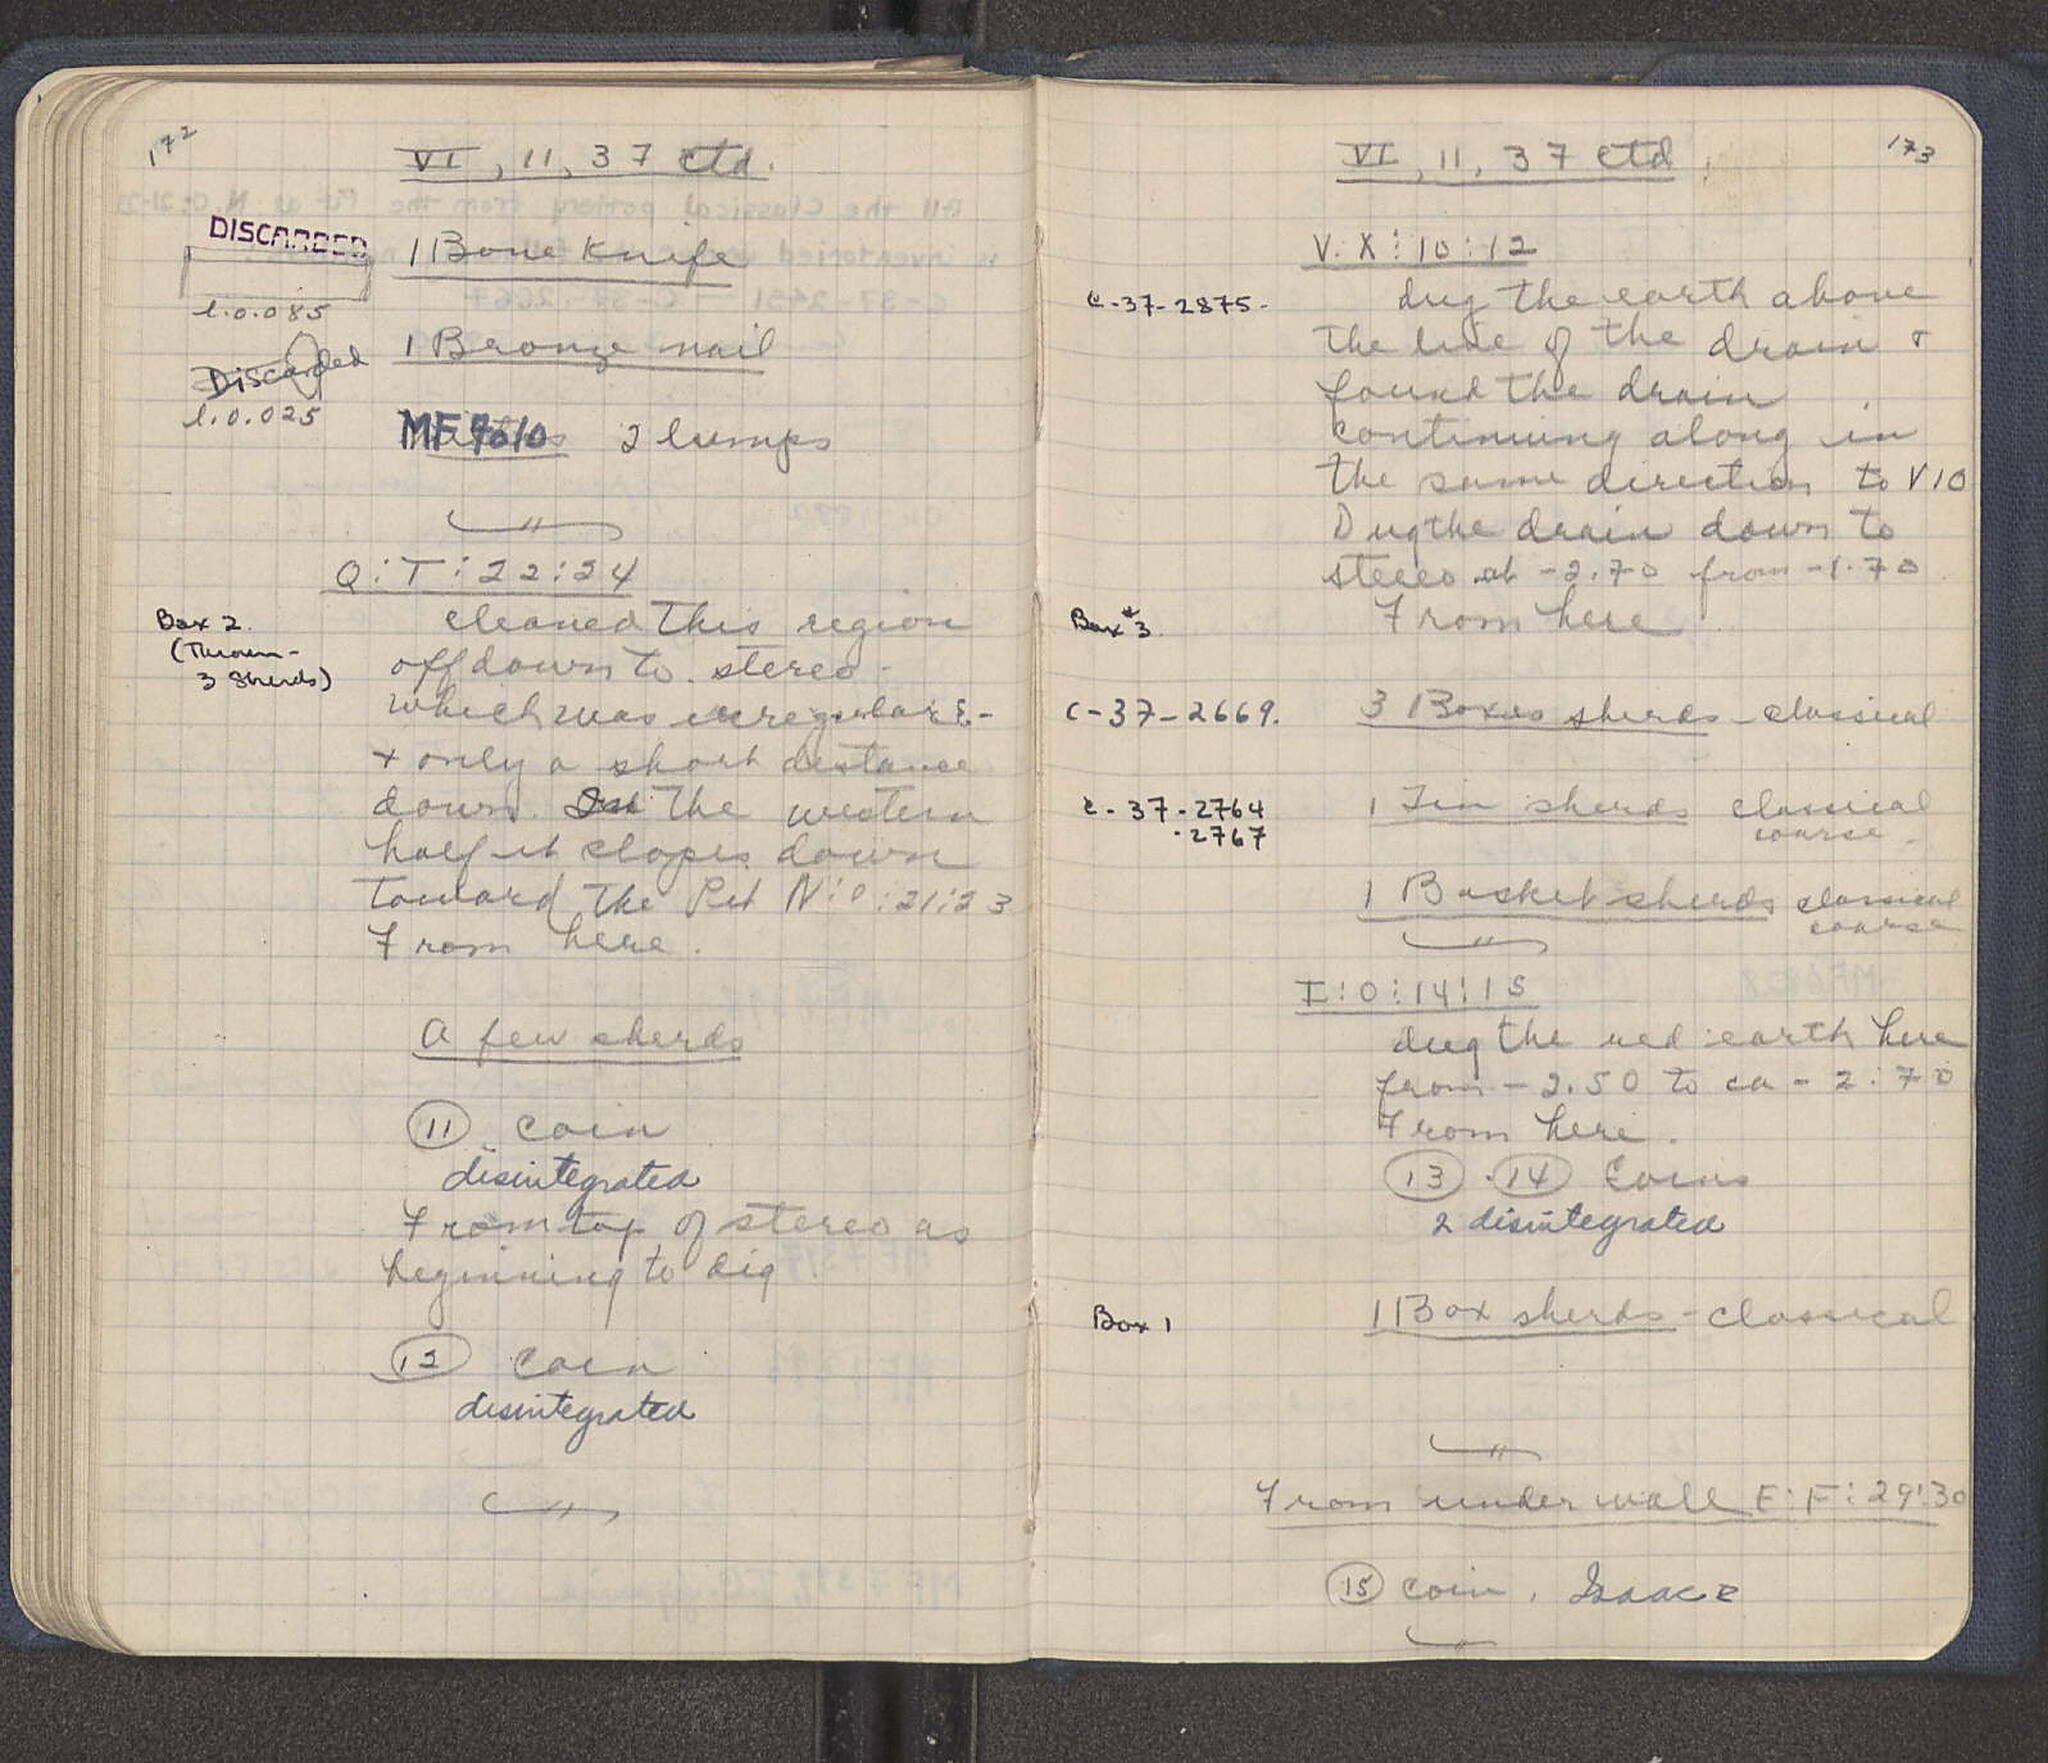 172
VI, 11, 37 ctd.
DISCARDED
1 Bone knife
l.0.085
1 Bronze nail
Discarded
l.0.025
MF7010 2 lumps
Q:T:22:24
Box 2.
(Thrown-
3 Sherds)
cleaned this region
off down to stereo -
which was irregular
+ only a short distance
down. In the western
half it slopes down
toward the Pit N:O:21:23
From here.
A few sherds
11 coin
disintegrated
From top of stereo as
beginning to dig
12 coin
disintegrated
173
VI, 11, 37 ctd
V:X:10:12
C-37-2875-
dug the earth above
the line of the drain +
found the drain
continuing along in
the same direction to V10
Dug the drain down to
stereo at -2.70 from -1.70
Box #3.
From here
C-37-2669.
3 Boxes sherds - classical
C-37-2764
-2767
1 Tin sherds classical
coarse
1 Basket sherds classical
coarse
I:O:14:15
dug the red earth here
from -2.50 to ca -2.70
From here.
13 . 14 Coins
2 disintegrated
Box 1
1 Box sherds - classical
From under wall E:F:29:30
15 coin, Isaac II